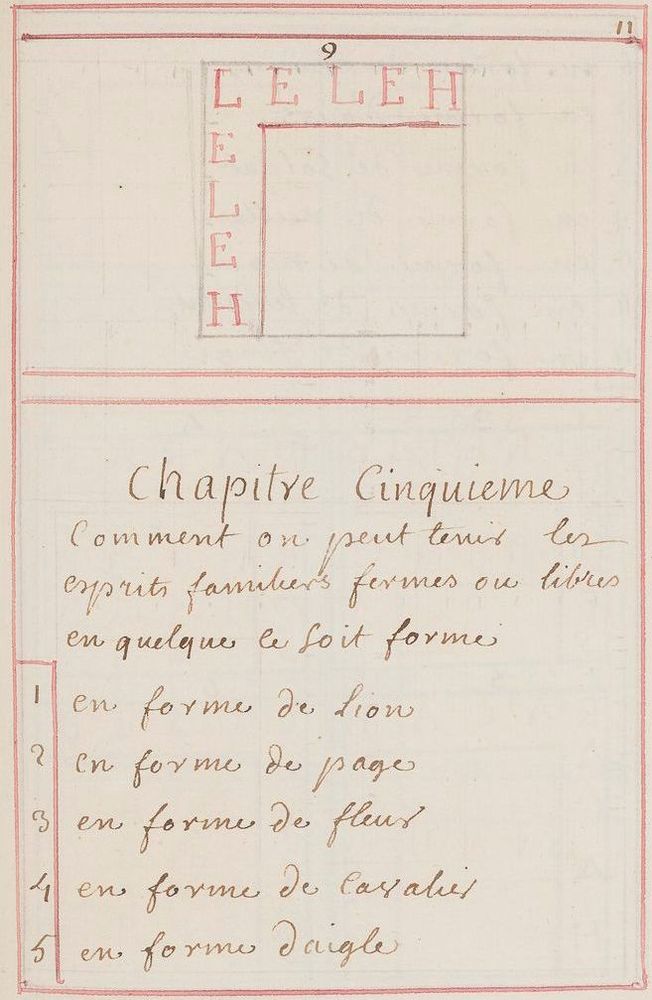 11
9
L E L E H
E
L
E
H
Chapitre Cinquieme
Comment on peut tenir les
esprits familiers fermes ou libres
en quelque ce soit forme
1 en forme de lion
2 en forme de page
3 en forme de fleur
4 en forme de Cavalier
5 en forme daigle